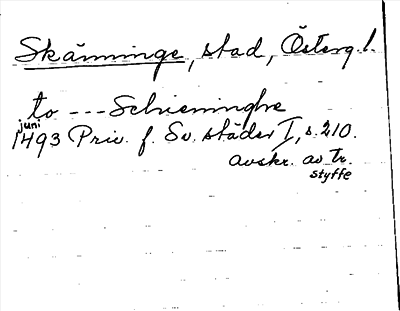 Skänninge, stad, Österg.l.
to --- Schieninghe
juni
1493 Priv. f. Sv. städer I, s. 210.
avskr. av tr.
styffe